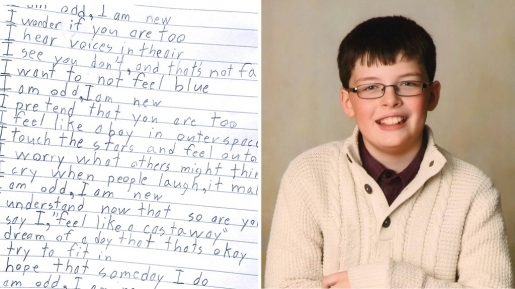 am odd, I am new
I wonder if you are too
I hear voices in the air
I see you don't, and that's not fa
I want to not feel blue
I am odd, I am new
I pretend that you are too
I feel like a boy in outerspace
I touch the stars and feel outo
I worry what others might thin
I cry when people laugh, it mak
am odd, I am new
understand now that so are you
say I, "feel like a castaway"
dream of a day that thats okay
try to fit in
hope that someday I do
am odd, I am